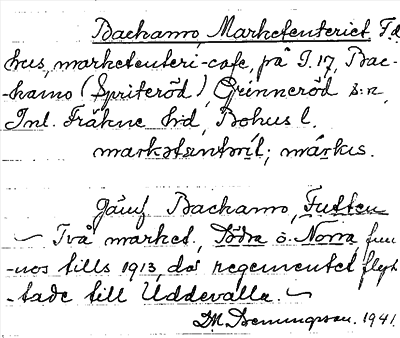 Backamo, Marketenteriet T.d.
hus, marketenteri-cafe, på I.17, Bac-
-kamo (Spriteröd), Grinneröd s:n,
Inl. Fräkne h:d, Bohus l.
markətæntərít; márkis.
Jämf Backamo,
Två market. Södra o. Norra fun-
-nos tills 1913, då regementet flyt-
-tade till Uddevalla.
1941.